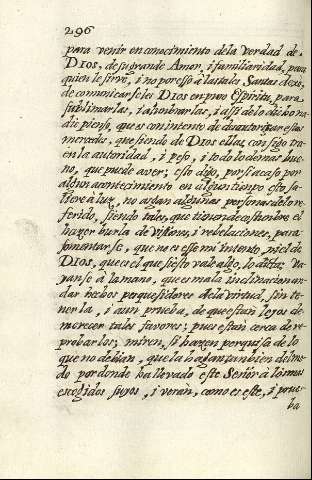 296
para venir en conocimiento de la verdad de
DIOS, de su grande Amor, i familiaridad, para
quien le sirve, i no por esso à las tales Santas dexò
de comunicarseles DIOS en puro Espiritu, para
sublimarlas, i alumbrarlas, i assi de lo dicho na-
die piense, que es con intento de desautorizar estas
mercedes, que siendo de DIOS ellas consigo tra-
en la autoridad, i peso, i todo lo demas bue-
no, que puede aver; esto digo, por si acaso por
algun acontecimiento en algun tiempo esto sa-
liere à luz, no asgan algunas personas de lo re-
ferido, siendo tales, que tienen de costumbre el
hazer burla de visiones, i rebelaciones, para
fomentarse, que no es esse mi intento, ni el de
DIOS, que es el que si esto vale algo, lo dicta; va-
yanse à la mano, que es mala inclinacion an-
dar hechos perseguidores de la virtud, sin te-
nerla, i aun prueba, de que estan lexos de
merecer tales favores; pues estan cerca de re-
probarlos; miren, si hazen perquisa de lo
que no debian, que la hagan tambien del mo-
do por donde ha llevado este Señor à los mas
escogidos suyos, i verán, como es este, i prue-
ba